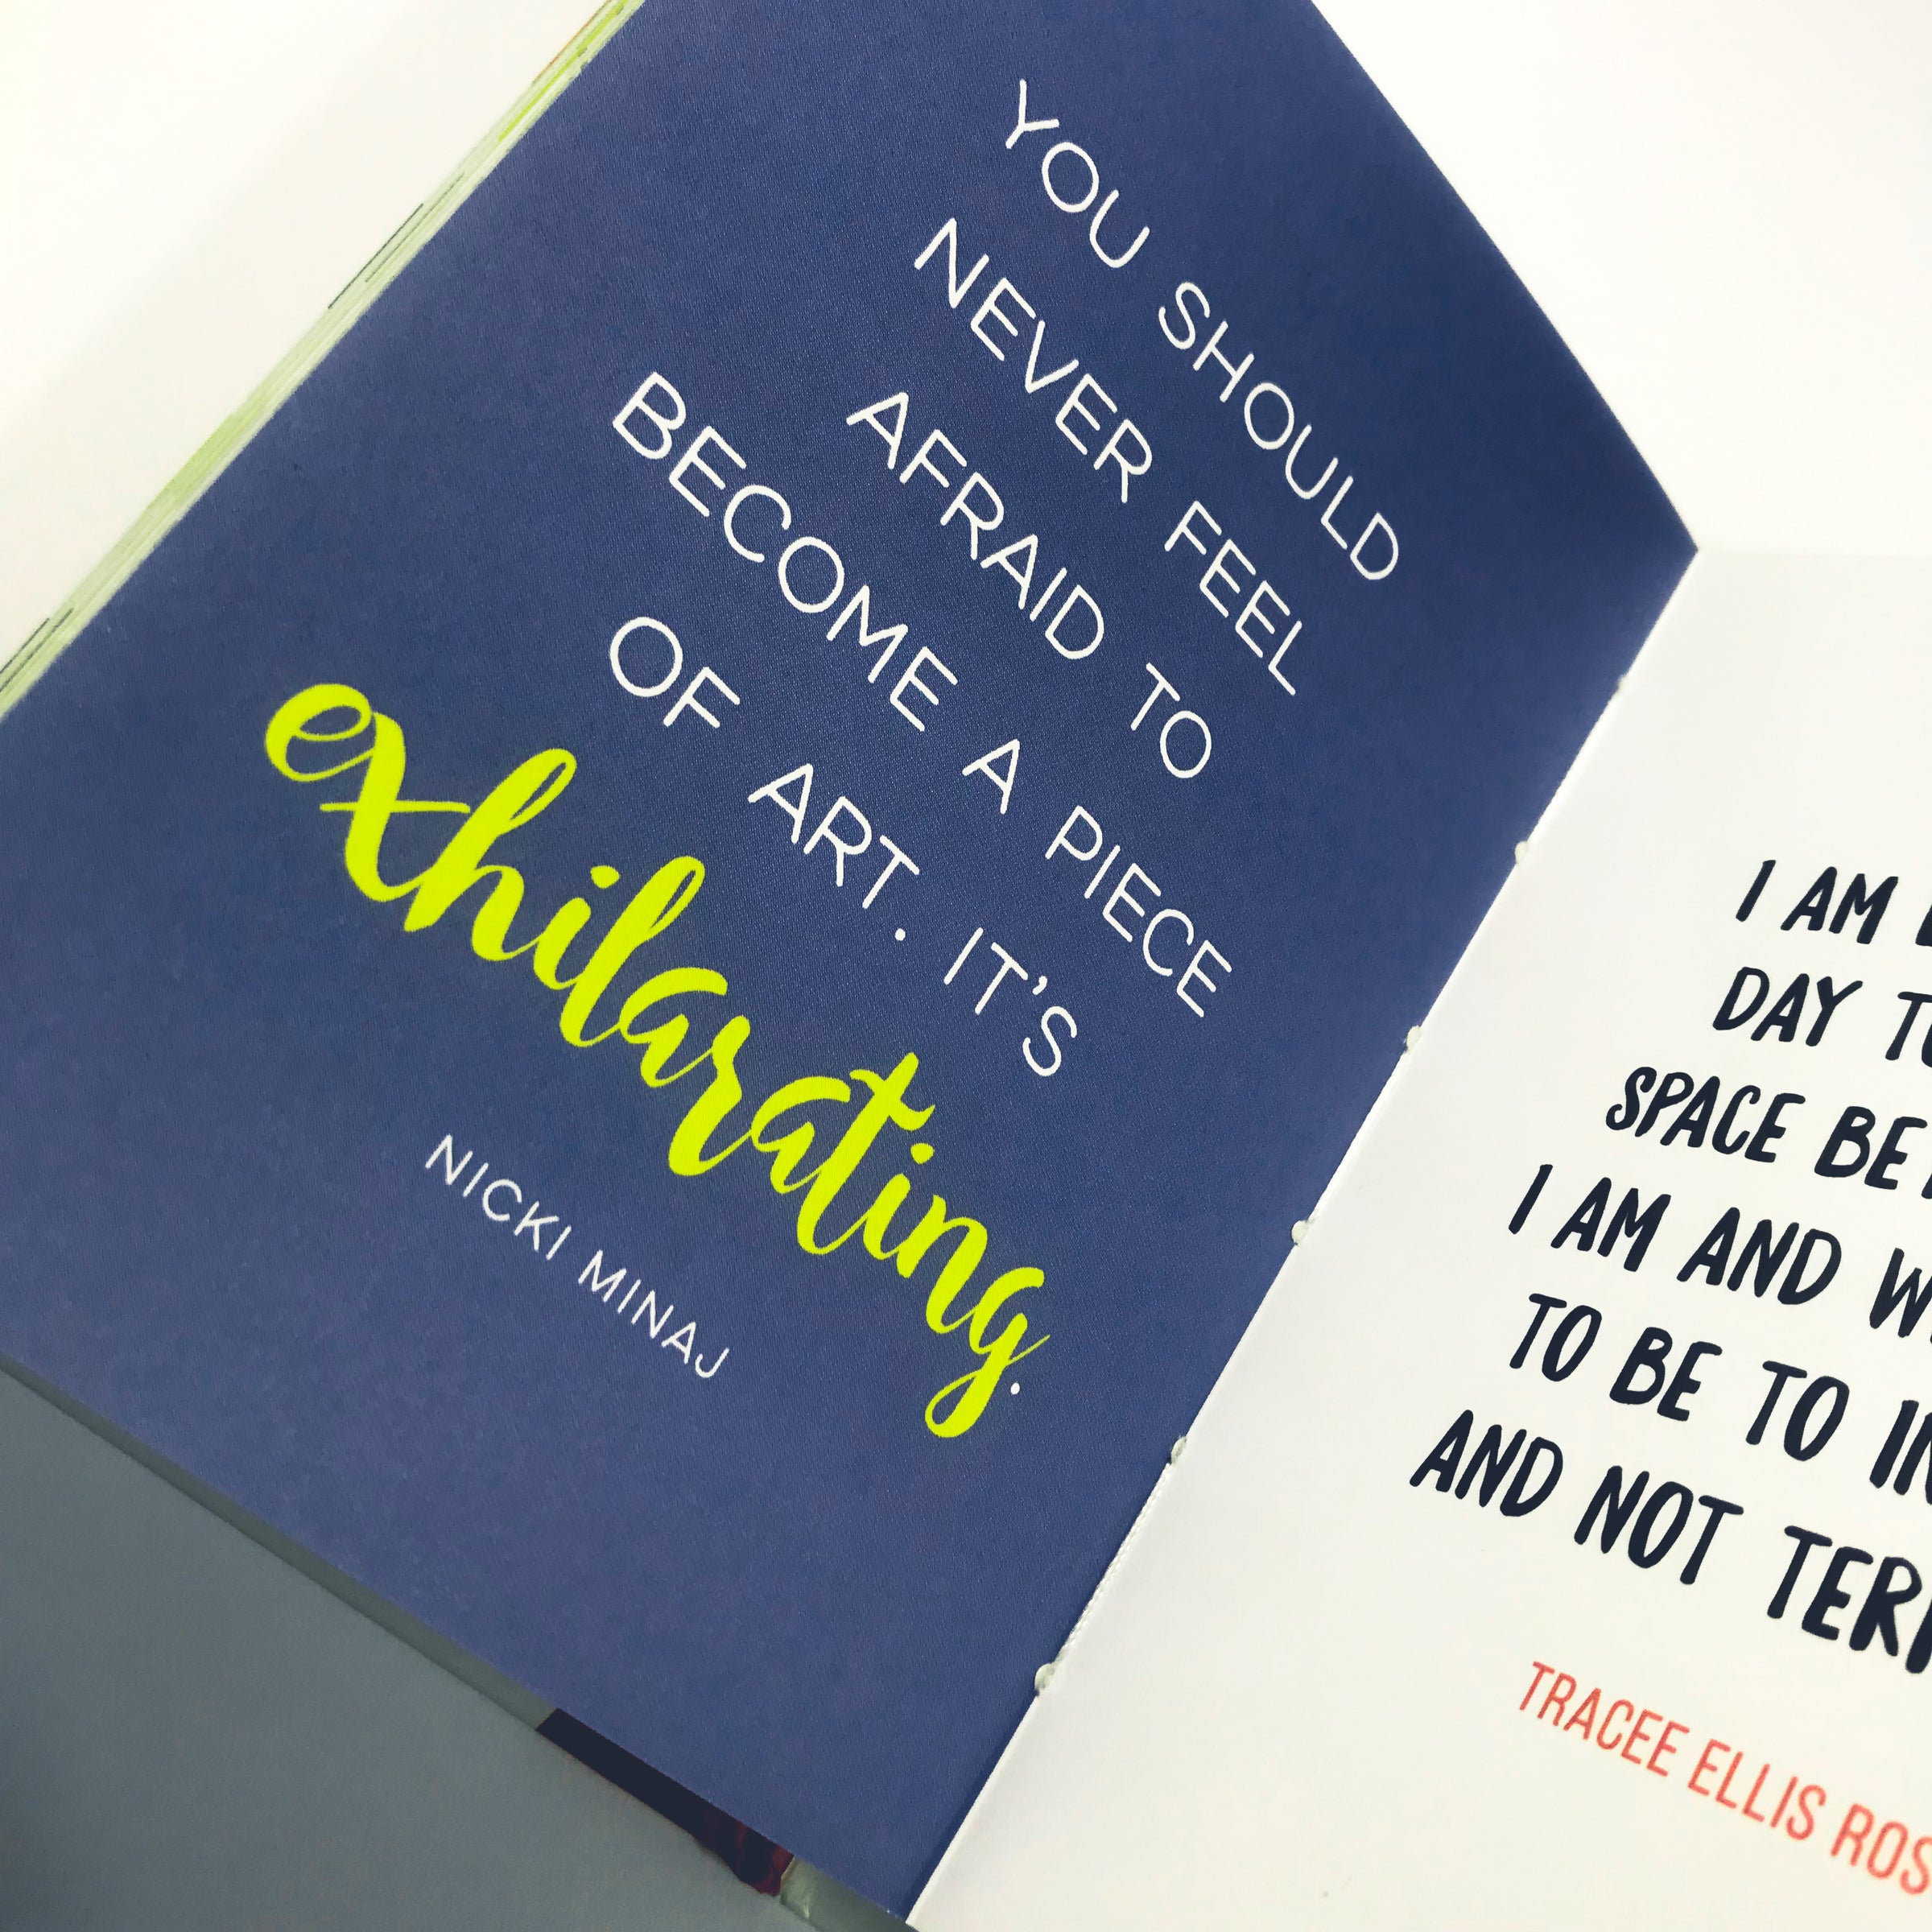 YOU SHOULD
NEVER FEEL
AFRAID TO
BECOME A PIECE
OF ART. IT'S
exhilarating.
NICKI MINAJ
I AM
DAY
SPACE
I AM AND
TO BE TO
AND NOT
TRACEE ELLIS